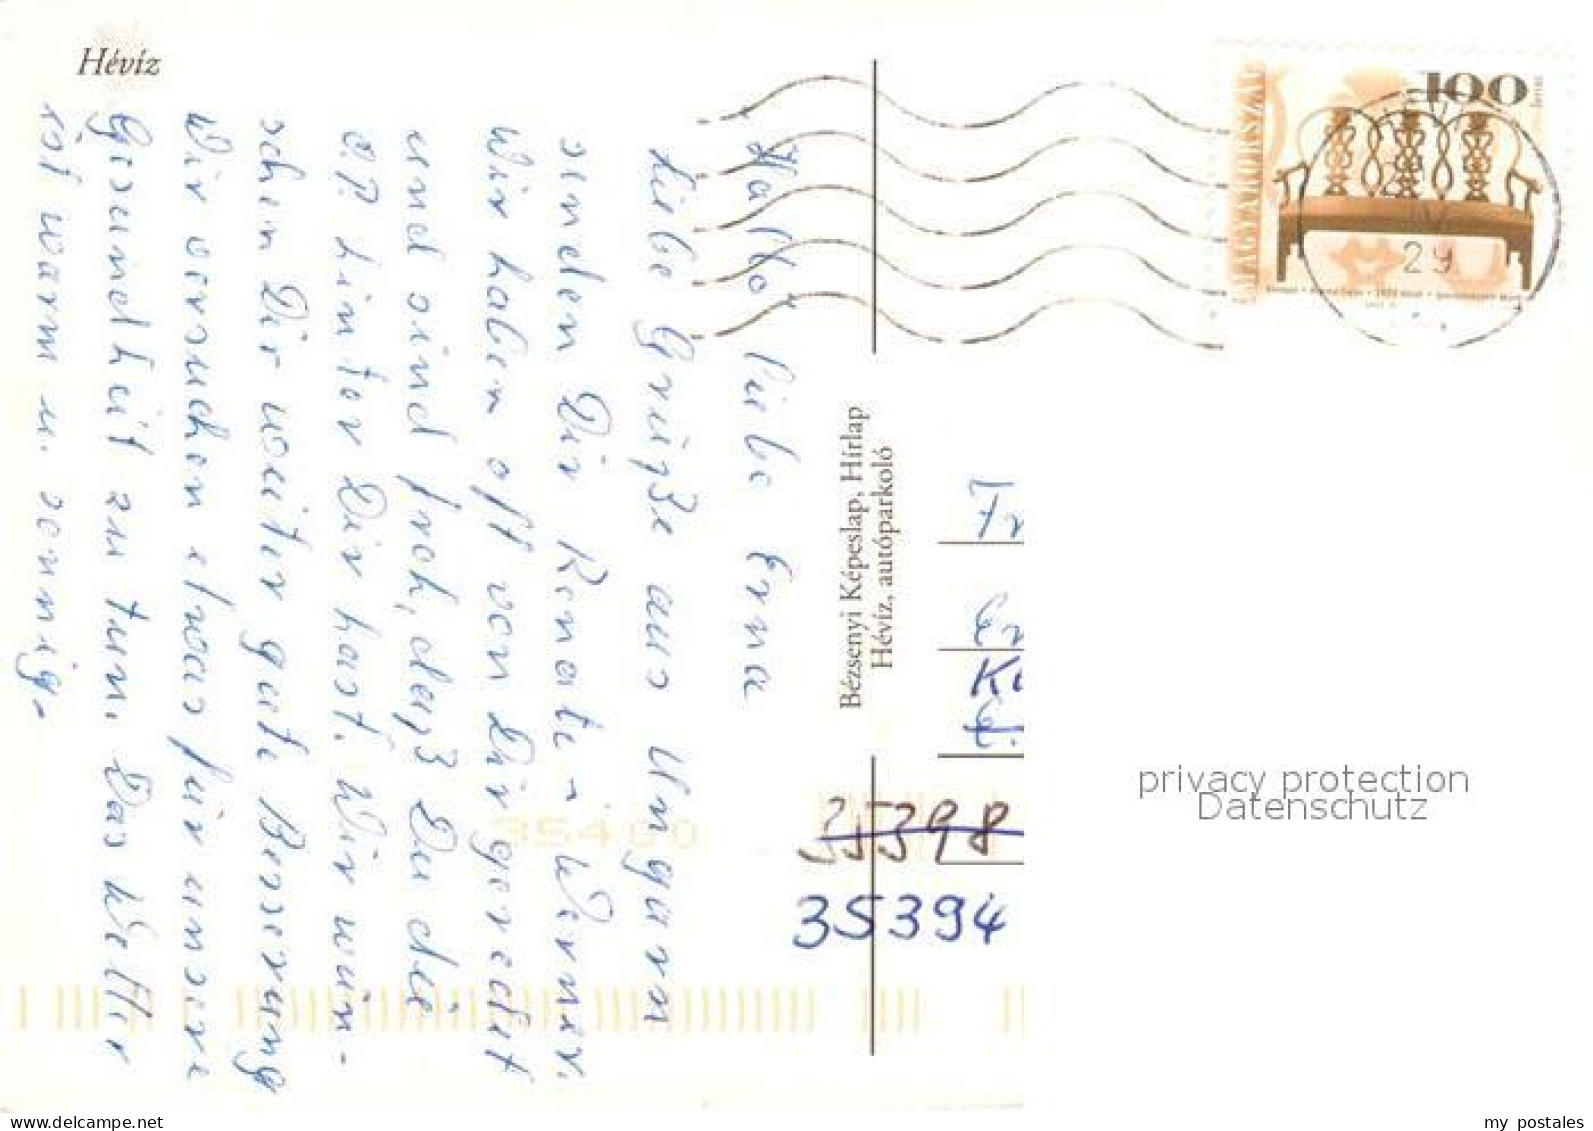 Hévíz
Hallo liebe Erna
Liebe Grüße aus Ungarn
senden Dir Renate - Werner.
Wir haben oft von Dir geredet
und sind froh, daß Du die
O.P. hinter Dir hast. Wir wün-
schen Dir weiter gute Besserung
Wir versuchen etwas für unsere
Gesundheit zu tun. Das Wetter
ist warm u. sonnig.
Bézsenyi Képeslap, Hírlap
Hévíz, autóparkoló
MAGYARORSZÁG
100
29
35400
35398
35394
privacy protection
Datenschutz
my postales